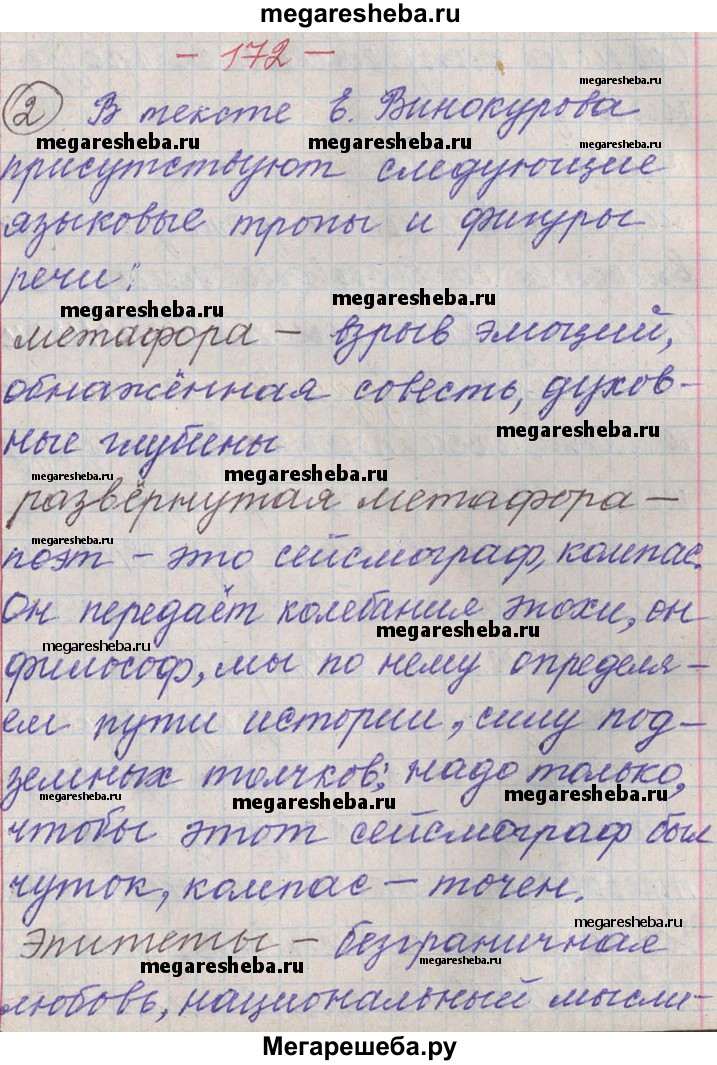 megaresheba.ru
- 172 -
megaresheba.ru
2 В тексте Е. Винокурова
megaresheba.ru megaresheba.ru megaresheba.ru
присутствуют следующие
языковые тропы и фигуры
речи:
megaresheba.ru megaresheba.ru
метафора - взрыв эмоций,
обнажённая совесть, духов-
megaresheba.ru
ные глубины
megaresheba.ru megaresheba.ru
развёрнутая метафора -
megaresheba.ru
поэт - это сейсмограф, компас.
Он передаёт колебания эпохи, он
megaresheba.ru megaresheba.ru
философ, мы по нему определя-
ем пути истории, силу под-
земных толчков; надо только,
megaresheba.ru megaresheba.ru megaresheba.ru
чтобы этот сейсмограф был
чуток, компас - точен.
megaresheba.ru
Эпитеты - безграничная
megaresheba.ru megaresheba.ru
любовь, национальный мысли-
Мегарешеба.ру